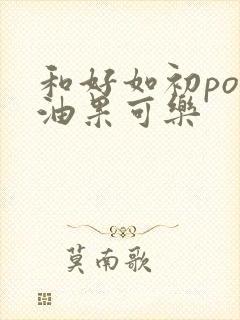 和好如初po
油果可樂
莫南歌